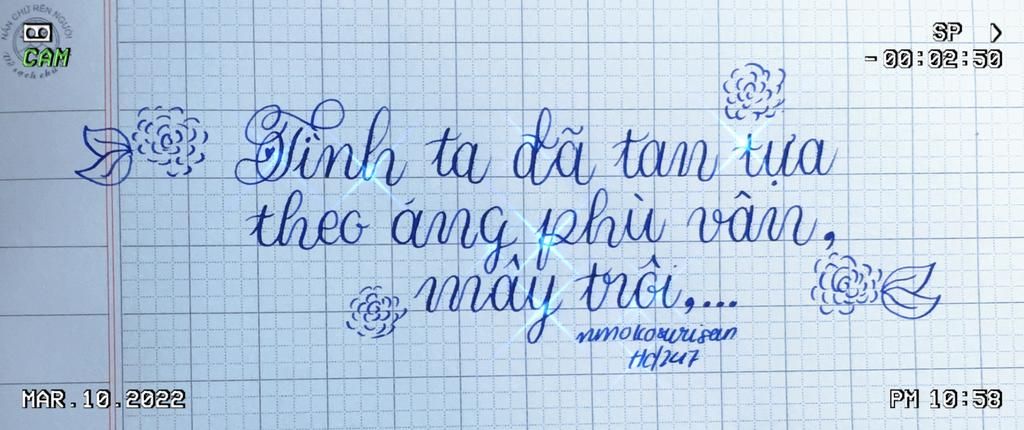 NẮN CHỮ RÈN NGƯỜI
CAM
SP
-00:02:50
Tình ta đã tan tựa
theo áng phù vân,
mây trôi,...
nmokosurisan
Hd/247
MAR.10.2022
PM 10:58